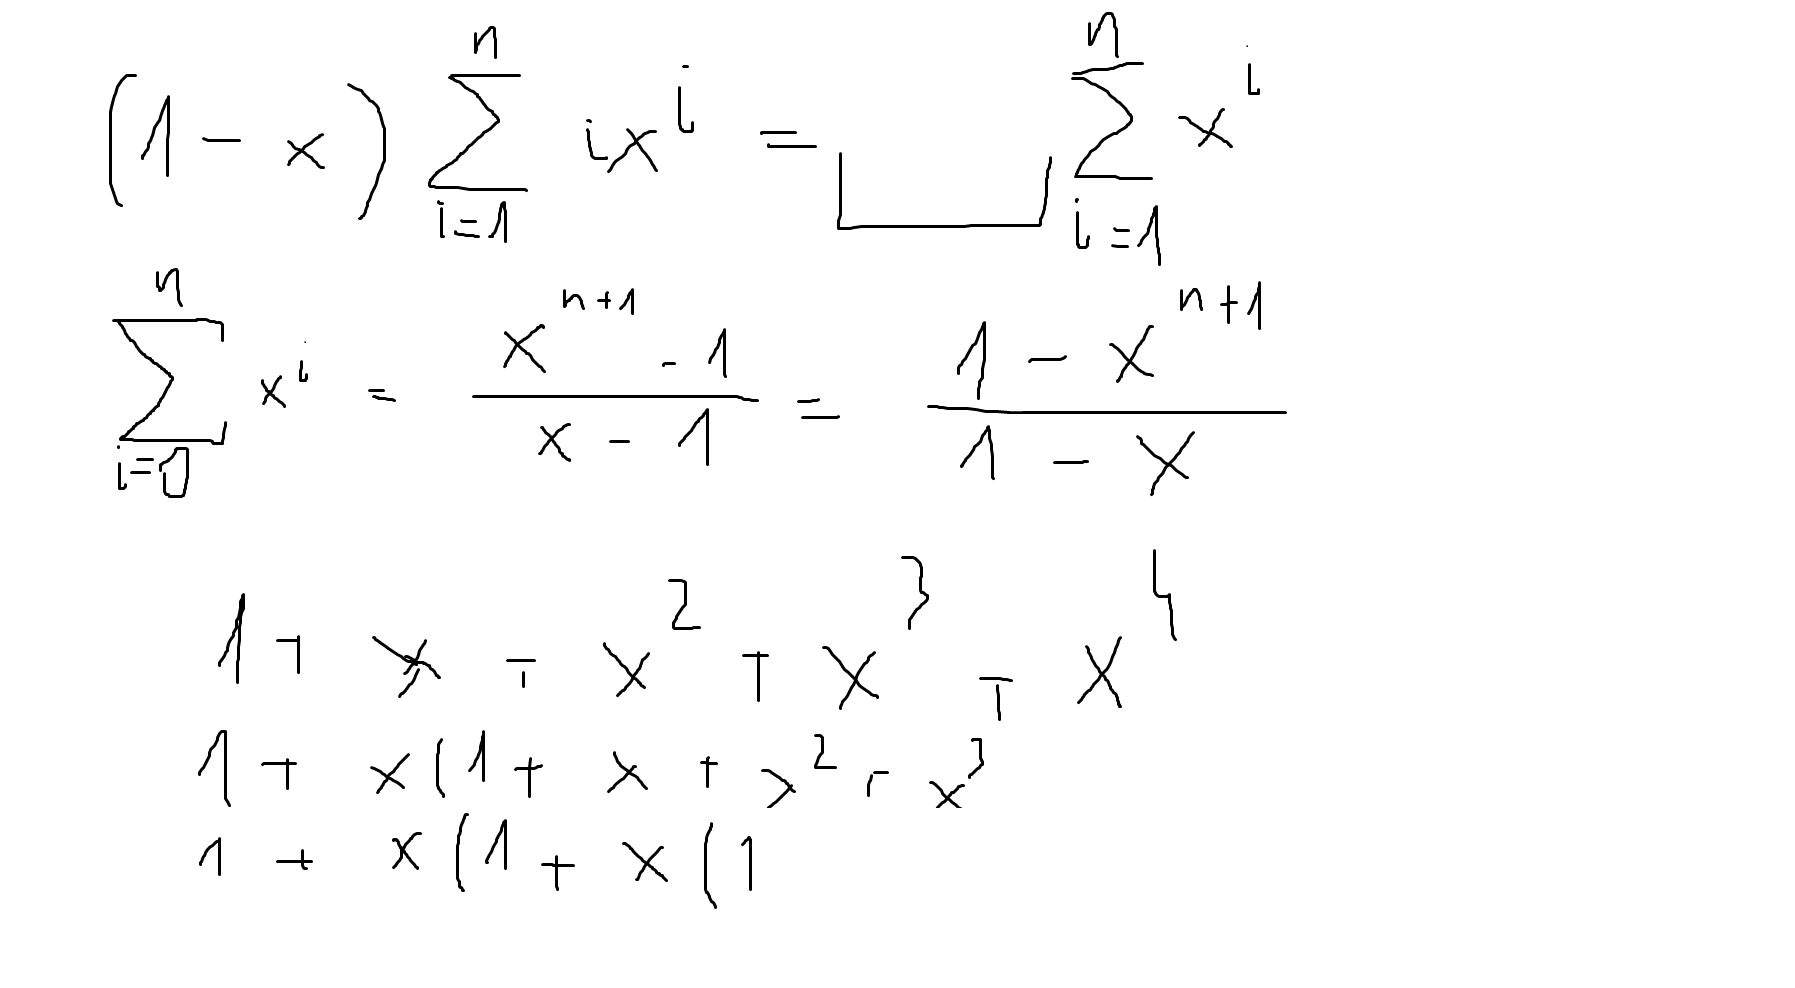 (1 - x) \sum_{i=1}^{n} ix^{i} = \_\_\_ \sum_{i=1}^{n} x^{i}
\sum_{i=0}^{n} x^{i} = \frac{x^{n+1} - 1}{x - 1} = \frac{1 - x^{n+1}}{1 - x}
1 + x + x^{2} + x^{3} + x^{4}
1 + x(1 + x + x^{2} + x^{3}
1 + x(1 + x(1